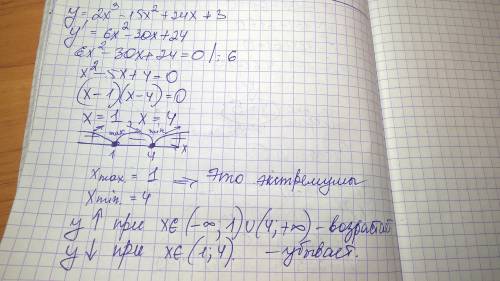 y = 2x³ - 15x² + 24x + 3
y' = 6x² - 30x + 24
6x² - 30x + 24 = 0 | : 6
x² - 5x + 4 = 0
(x - 1)(x - 4) = 0
x = 1, x = 4
+ max - min +
1 4 x
x max = 1 ⇒ это экстремумы
x min = 4
y ↑ при x∈(-∞, 1)∪(4; +∞) - возрастает
y ↓ при x∈(1; 4) - убывает.